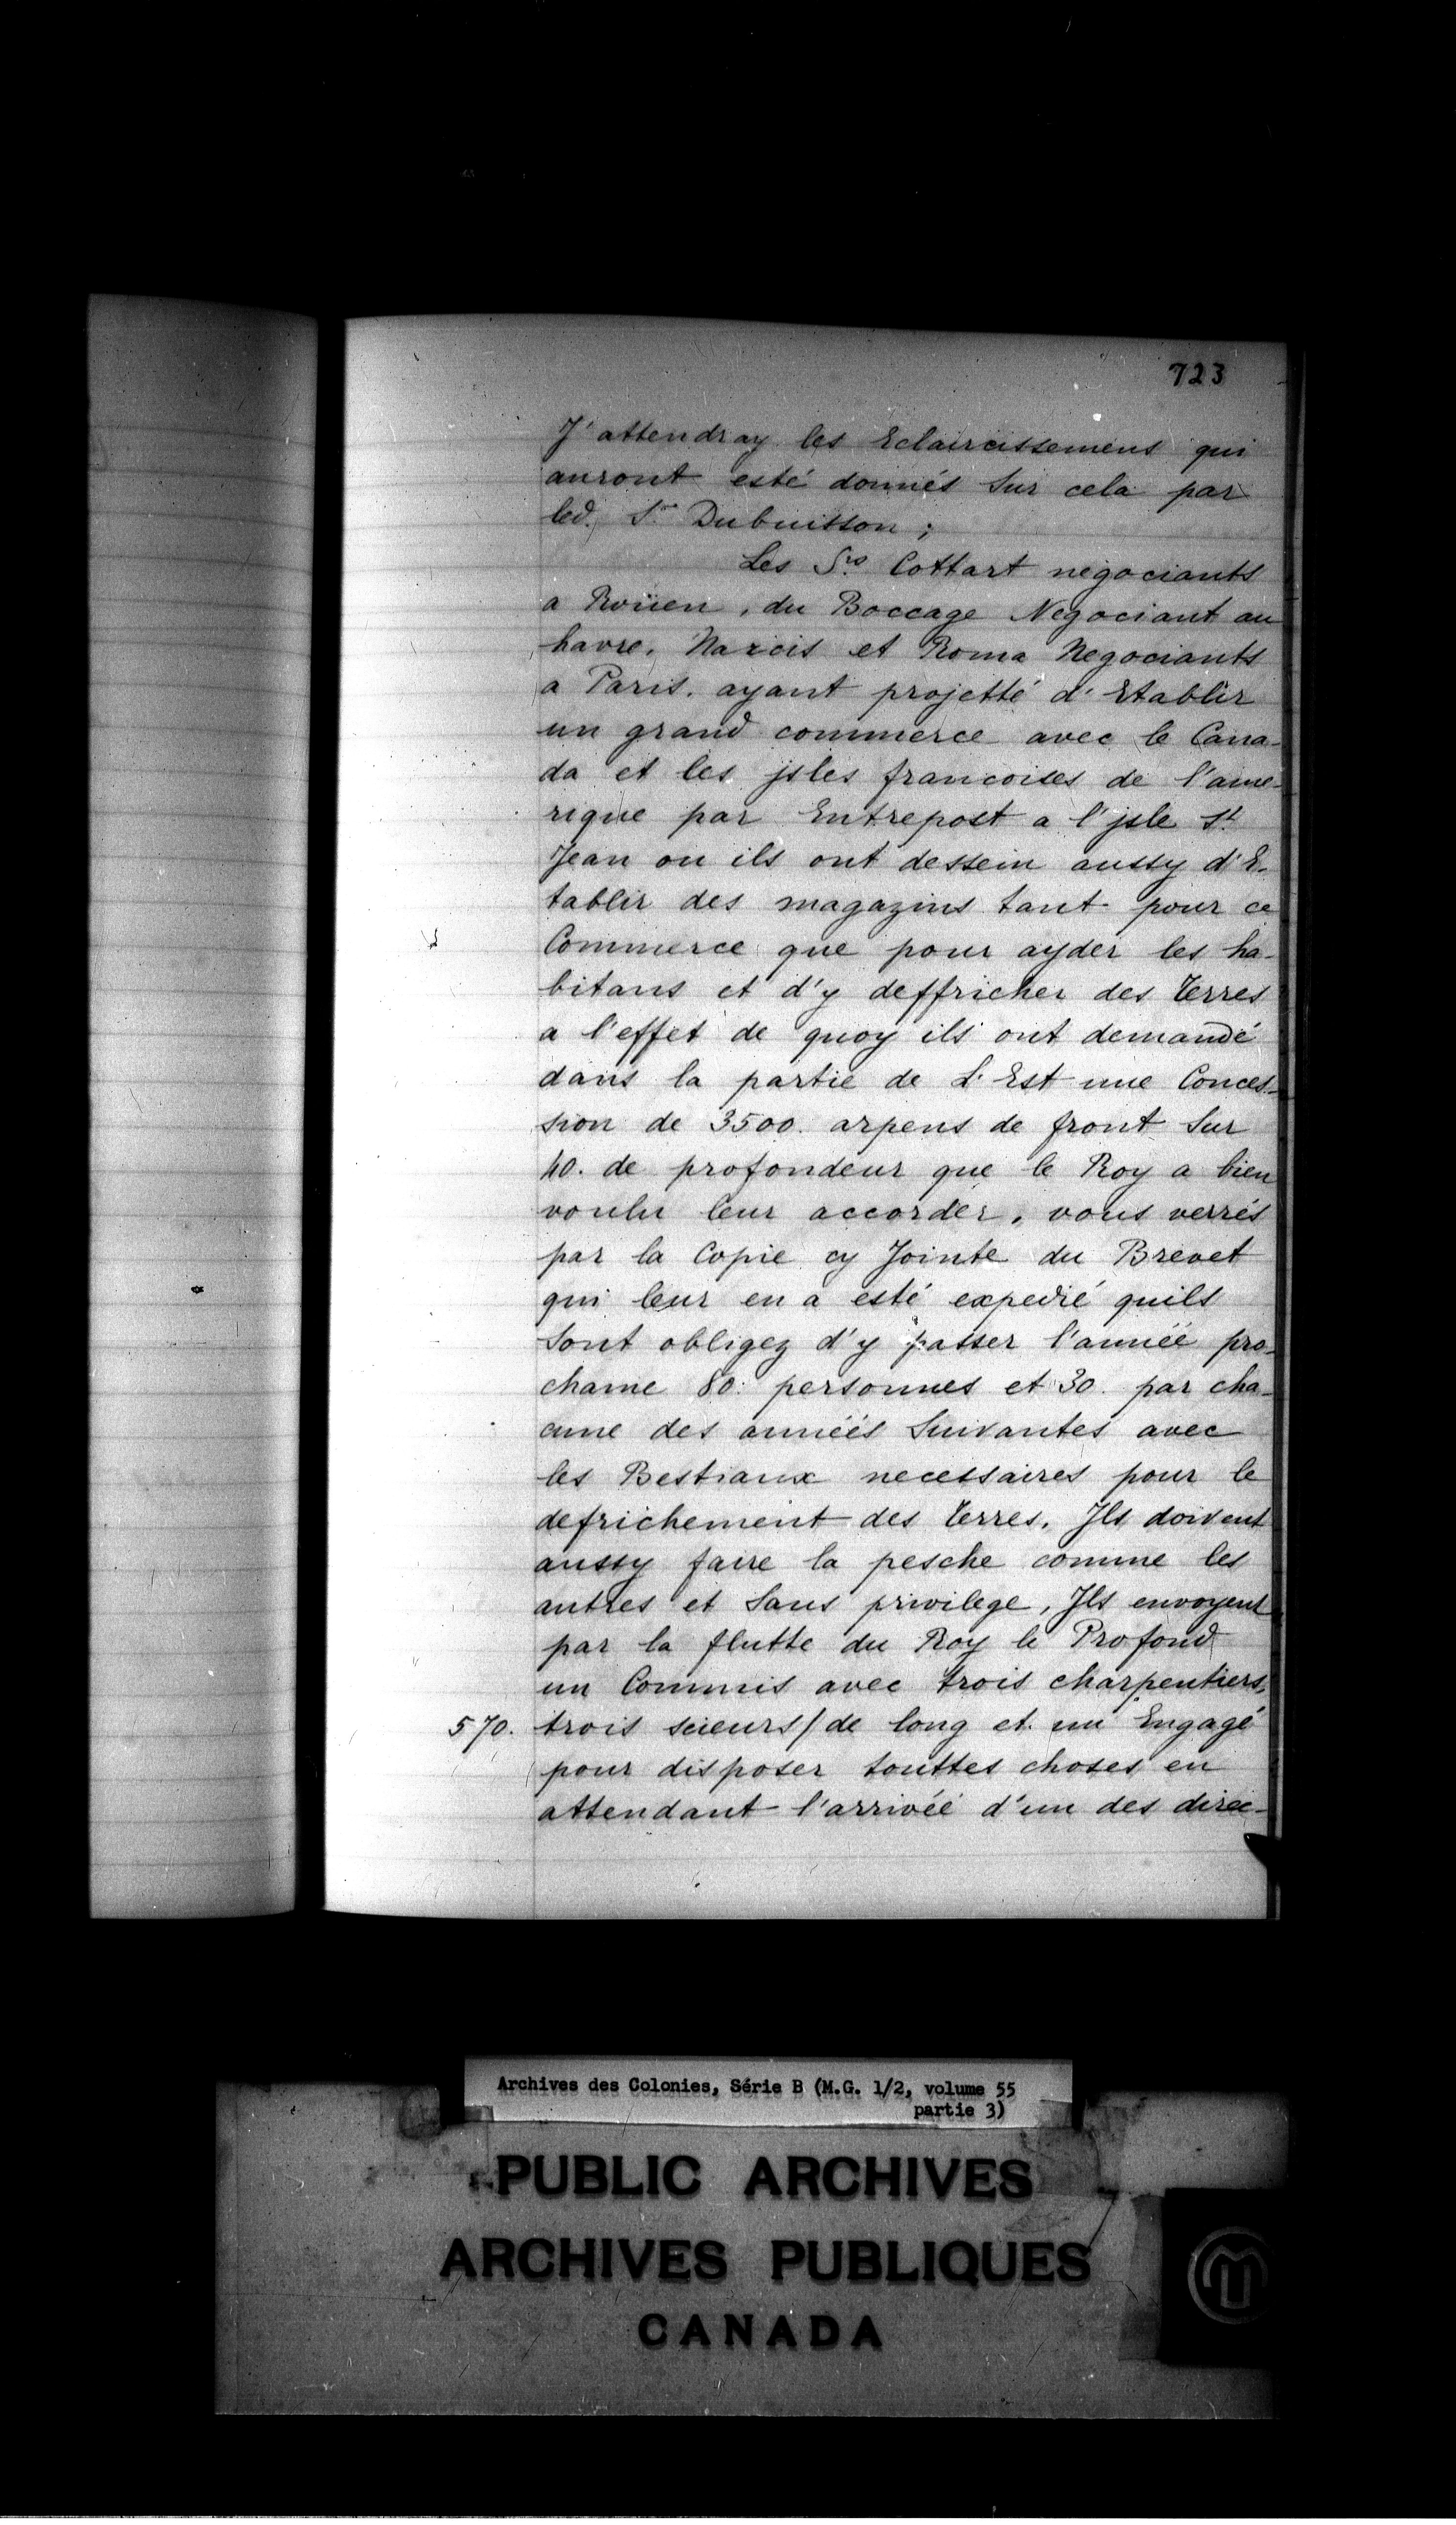 723
J'attendray les Eclaircissemens qui
auront esté donnés sur cela par
led. Sr Dubuisson ;
Les Srs Cottart negociants
a Roüen, du Boccage Negociant au
havre, Narcis et Roma Negociants
a Paris. ayant projetté d'Etablir
un grand commerce avec le Cana-
da et les jsles francoises de l'ame-
rique par Entrepost a l'jsle St
Jean ou ils ont dessein aussy d'E-
tablir des magazins tant pour ce
Commerce que pour ayder les ha-
bitans et d'y deffricher des terres
a l'effet de quoy ils ont demandé
dans la partie de L'Est une Conces-
sion de 3500. arpens de front sur
40. de profondeur que le Roy a bien
voulu leur accorder, vous verrés
par la Copie cy Jointe du Brevet
qui leur en a esté expedié quils
sont obligez d'y passer l'année pro-
chaine 80. personnes et 30. par cha-
cune des années suivantes avec
les Bestiaux necessaires pour le
defrichement des terres, Jls doivent
aussy faire la pesche comme les
autres et sans privilege, Jls envoyent
par la flutte du Roy le Profond
un Commis avec trois charpentiers,
570. trois scieurs/de long et un Engagé
pour disposer touttes choses en
attendant l'arrivée d'un des direc-
Archives des Colonies, Série B (M.G. 1/2, volume 55
partie 3)
PUBLIC ARCHIVES
ARCHIVES PUBLIQUES
CANADA